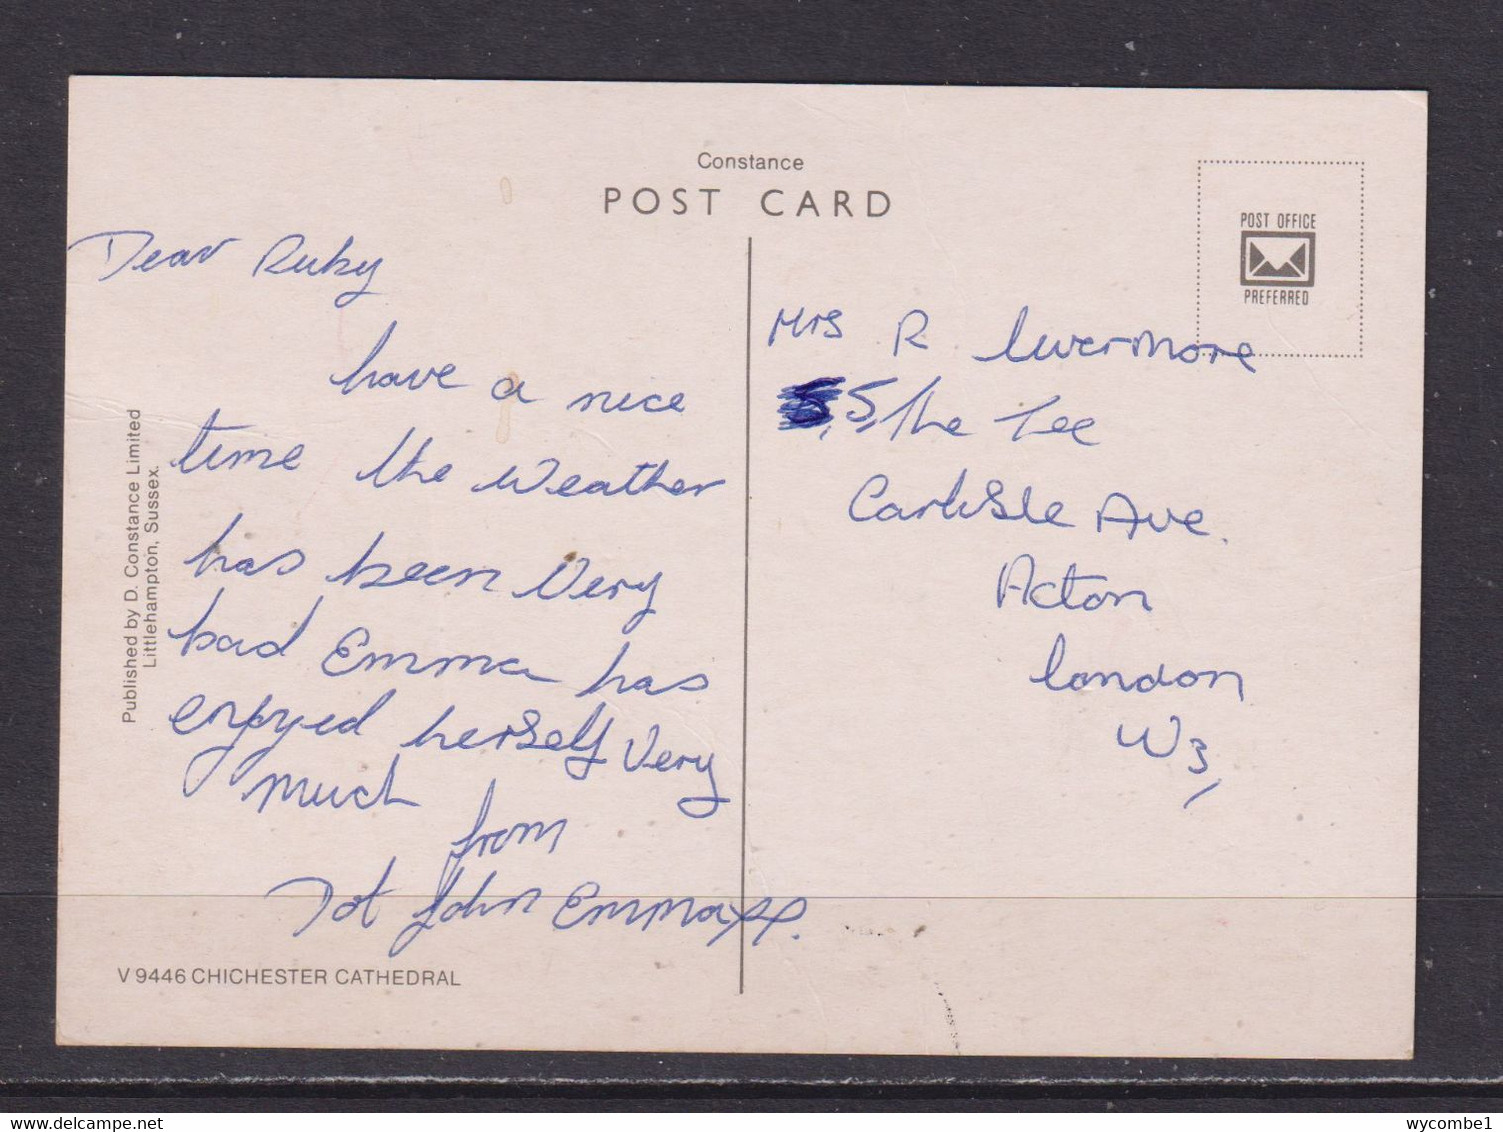 Constance
POST CARD
POST OFFICE
PREFERRED
Dear Ruby
have a nice
time the weather
has been Very
bad Emma has
enjoyed herself Very
much
from
Dot John Emma xx.
Mrs R livermore
5, The Tee
Carlisle Ave.
Acton
london
W3,
Published by D. Constance Limited
Littlehampton, Sussex.
V 9446 CHICHESTER CATHEDRAL
wycombe1